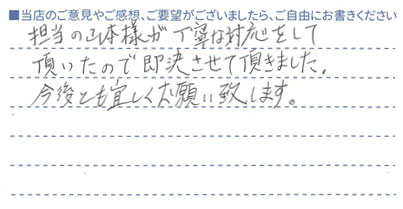 ■当店のご意見やご感想、ご要望がございましたら、ご自由にお書きください
担当の山本様が丁寧な対応をして
頂いたので即決させて頂きました。
今後とも宜しくお願い致します。